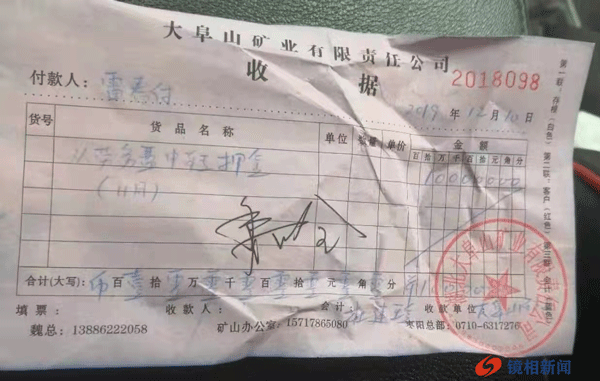 大阜山矿业有限责任公司
收 据
2018098
付款人：雷 付
2019 年 12 月 10 日
货号 货品名称 单位 数量 单价 金额
百 拾 万 千 百 拾 元 角 分
押金 10000000
(11月)
合计(大写): 币 百 壹 拾 零 万 零 千 零 百 零 拾 零 元 零 角 零 分
填票： 收款人： 会计： 收款单位
魏总：13886222058 矿山办公室：15717865080 枣阳总部：0710-6317276
第一联：存根（白色）第二联：客户（红色）第三联：
大阜山矿业有限责任公司
镜相新闻